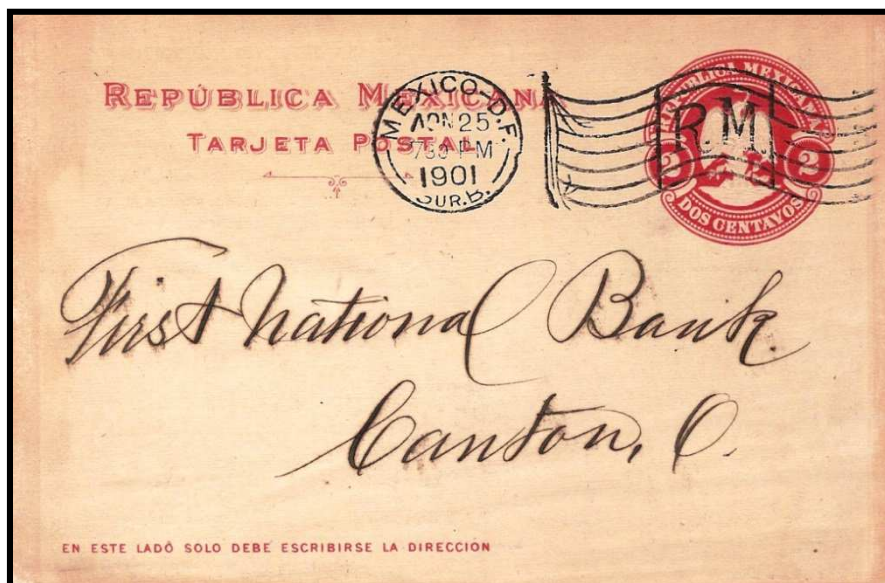 REPÚBLICA MEXICANA
TARJETA POSTAL
MEXICO-D.F.
25
730 PM
1901
SUR.B.
R.M.
REPUBLICA MEXICANA
2 2
DOS CENTAVOS
First National Bank
Canton, O.
EN ESTE LADO SOLO DEBE ESCRIBIRSE LA DIRECCION